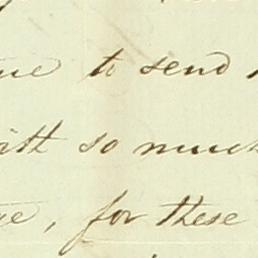 to send
so much
, for these